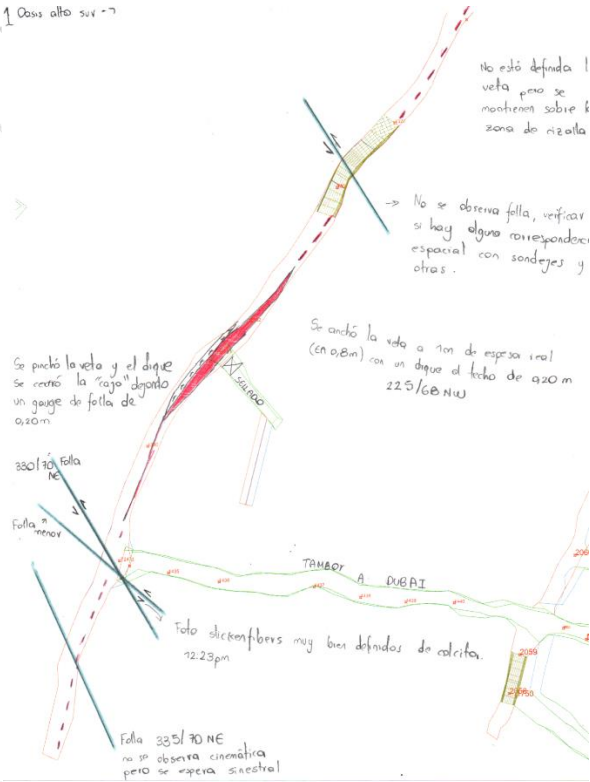 1 Oasis alto sur
No está definida l
veta pero se
mantienen sobre l
zona de cizalla
No se observa falla, verificar
si hay alguna correspondenci
espacial con sondejes y
otras.
Se anchó la veta a 1m de espesor real
(EA 0,8m) con un dique al techo de 0,20 m
225/68 NW
Se pinchó la veta y el dique
se cerró la "caja" dejando
un gauge de falla de
0,20m
SELLADO
330/70 Falla
NE
Falla
menor
TAMBOY A DUBAI
Foto slickenfibers muy bien definidos de calcita.
12:23pm
2059
Falla 335/70 NE
no se observa cinemática
pero se espera sinestral